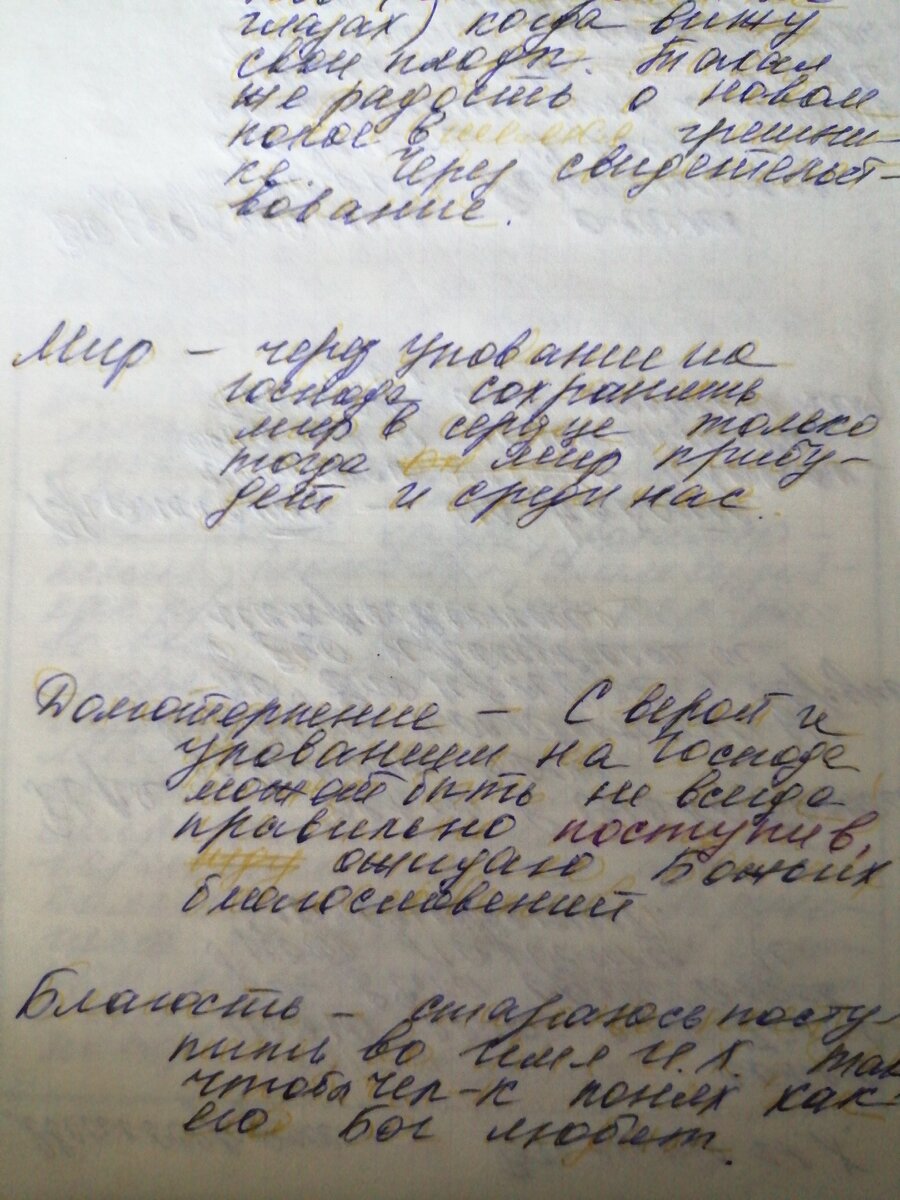 глазах) когда вижу
свои плоды. Такая
же радость о новом
грешни-
ке. Через свидетельст-
вование.
Мир - через упование на
Господа сохранить
мир в сердце только
тогда мир прибу-
дет и среди нас.
Долготерпение - С верой и
упованием на Господа
может быть не всегда
правильно поступив,
ожидаю Божьих
благословений
Благость - стараюсь посту-
пить во имя И.Х. так
чтобы чел-к понял как
его Бог любит.